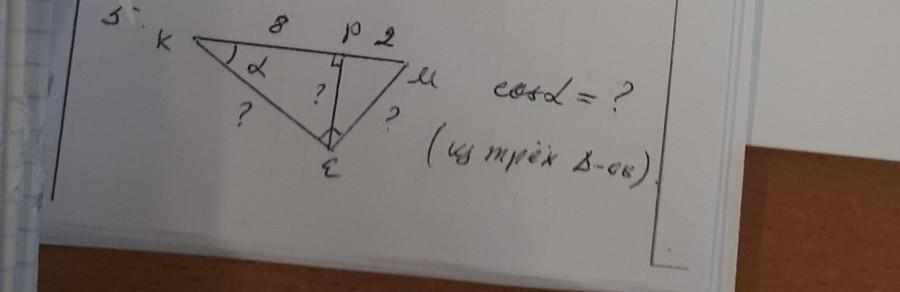 5.
8
K P 2
α M
? ? ?
E
cosα = ?
(из трёх Δ-ов).